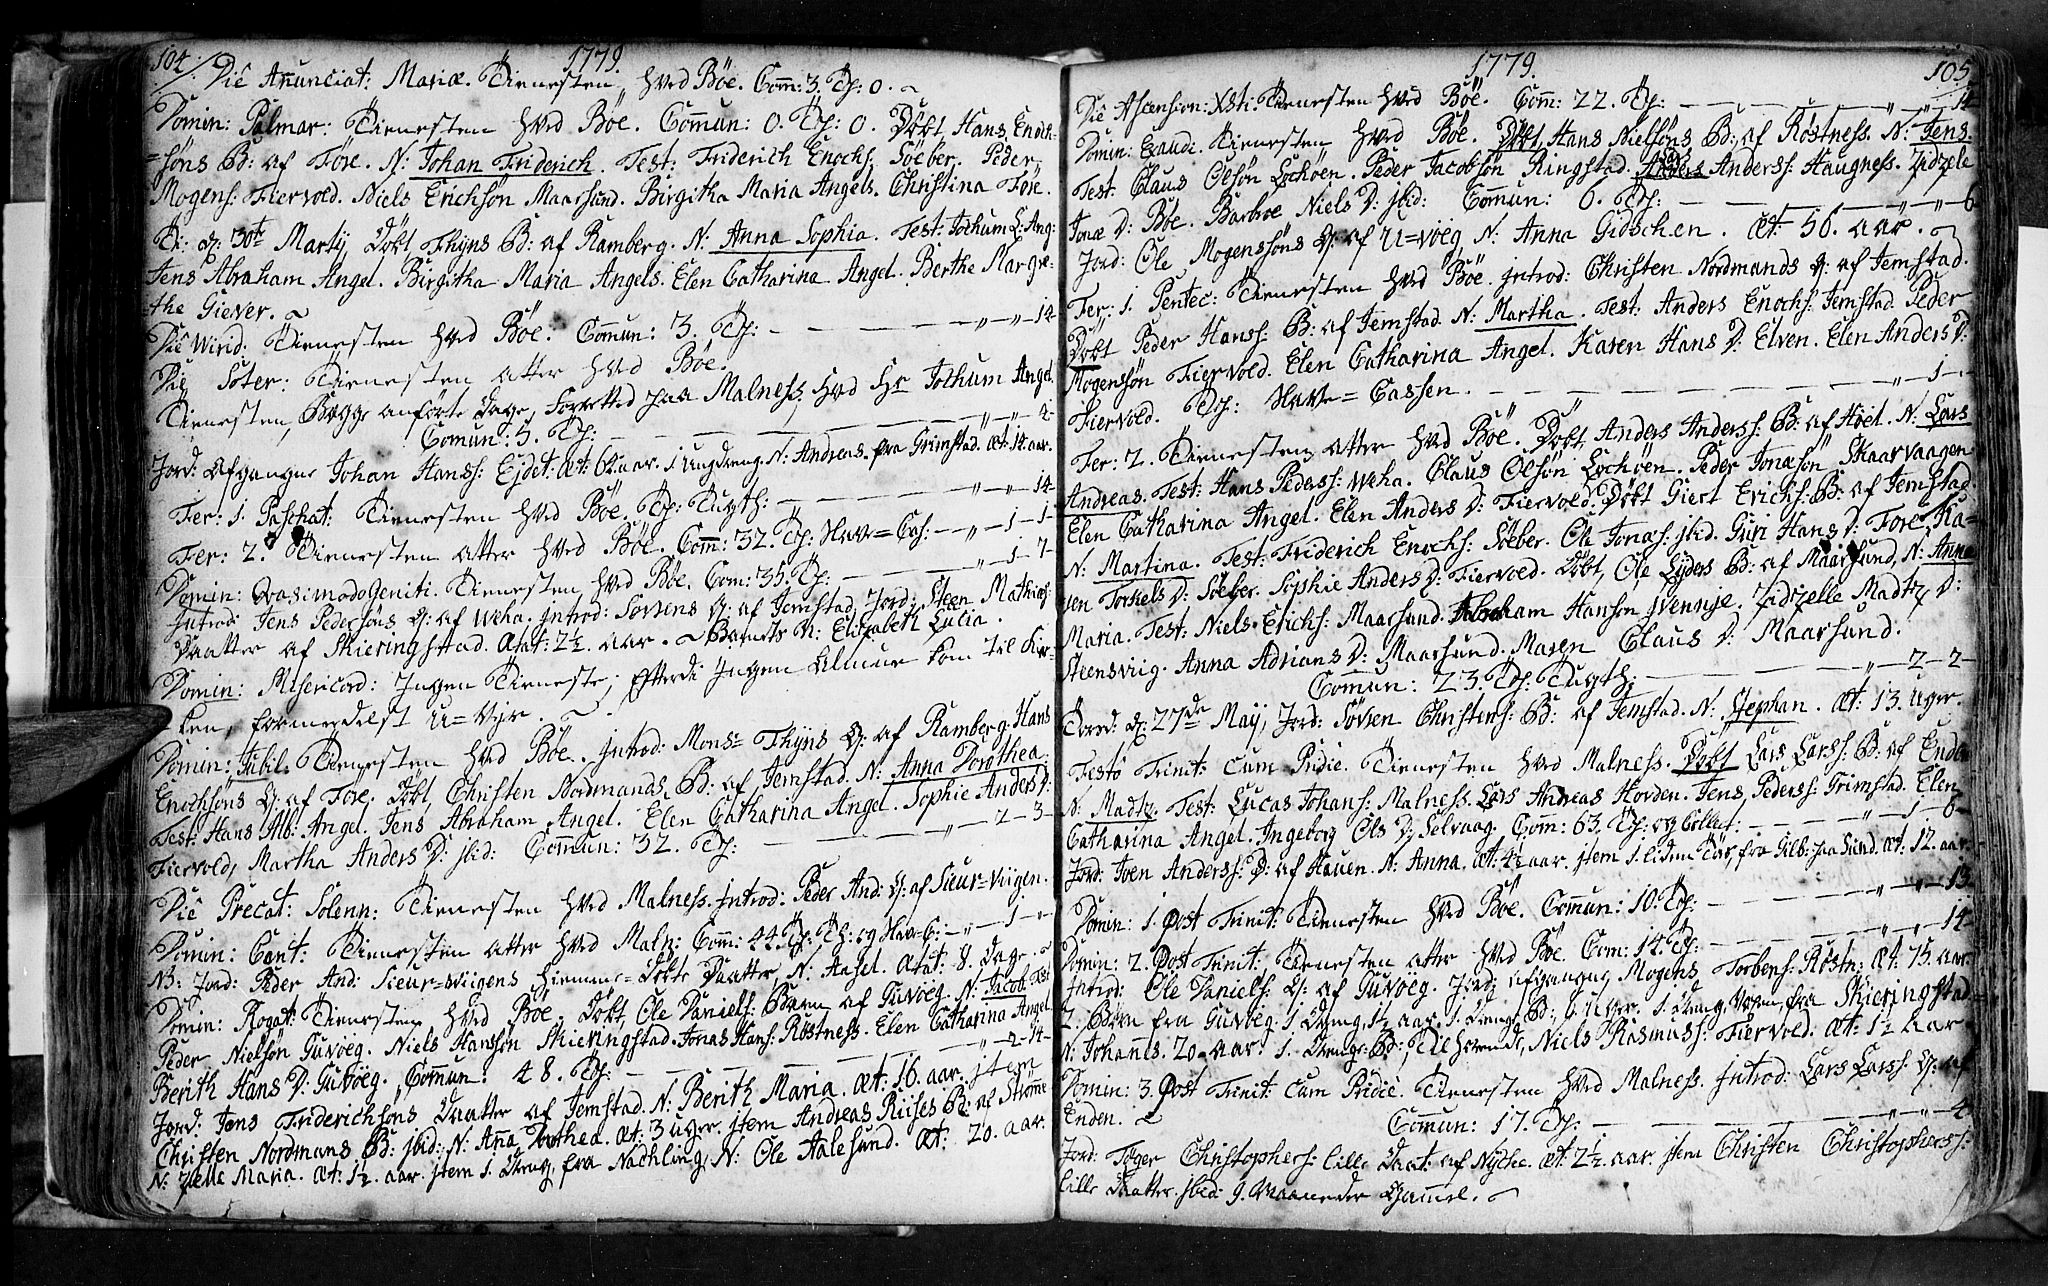 104.
1779.
Die Añunciat: Mariæ. Tienesten, hved Böe. Com̄: 3. Tf: 0.
Domin: Palmar: Tienesten hved Böe. Com̄un: 0. Tf: 0. Döbt, Hans Enoch-
=söns B: af Före. N: Johan Friderich. Test: Friderich Enochs: Söeber. Peder
Mogens: Fiervold. Niels Erichsön Maarsund. Birgitha Maria Angels. Christina Före.
D: 30te Martij Döbt Thÿns B: af Ramberg. N: Anna Sophia. Test: Jochum L: Ang:
Jens Abraham Angel. Birgitha Maria Angels. Elen Catharina Angel. Berthe Margre=
the Giever.
Die Virid. Tienesten hved Böe. Com̄un: 3. Tf: — 14
Die Soter: Tienesten atter hved Böe.
Tienesten, Begge anförte Dage, forretted paa Malness, hved Hr Jochum Angel
Com̄un: 5. Tf: — 4
Jord: Afgangne Johan Hanss: Ejdet: Æt: 62. aar. 1 ungdreng. N: Andreas. fra Grimstad. Æt: 14. aar.
Fer: 1. Paschat: Tienesten hved Böe. Tf: Tugth: — 14
Fer: 2. Tienesten atter hved Böe. Com̄: 32. Tf: Have=Cas: — 1 — 1
Domin: Qvasimodo Geniti. Tienesten hved Böe. Com: 35. Tf: — 1 — 7
Introd: Jens Pedersöns Q: af Weha. Introd: Sörens Q: af Jemstad. Jord: Steen Mathiæs:
Daatter af Skieringstad. Ætat: 2½ aar. Barnets N: Elizabeth Lucia.
Domin: Misericord: Ingen Tieneste; Efterdi Ingen Almue kom til Kir=
=ken, formedelst U=Vejr.
Domin: Jubil: Tienesten hved Böe. Introd: Monsr Thÿns Q: af Ramberg. Hans
Enochsöns Q: af Före. Döbt, Christen Nordmands B: af Jemstad. N: Anna Dorothea.
Test: Hans Alb: Angel. Jens Abraham Angel. Elen Catharina Angel. Sophie Anders D:
Fiervold, Martha Anders D: jbid: Com̄un: 32. Tf: — 2 — 3
Die Precat: Solenn: Tienesten hved Malness. Introd: Peder And: Q: af Sieur=viigen.
Domin: Cant: Tienesten atter hved Maln: Com̄: 44. Tf: og Hav=C: — 1
NB: Jord: Peder And: Sieur=viigens Hiemme=Döbte Daatter. N: Axsel. Ætat: 8. Dage.
Domin: Rogat: Tienesten hved Böe. Döbt, Ole Daniels: Barn af Guvoeg. N: Jacob. Test
Peder Nielsön Guvoeg. Niels Hansson Skieringstad. Jonas Hans: Röstness. Elen Catharina Angel.
Berith Hans D: Guvöeg. Com̄un: 48. Tf: — 2 — 14
Jord. Jens Friderichsöns Daatter af Jemstad. N: Berith Maria. Æt: 16. aar. jtem
Christen Nordmans B: jbid: N: Aña Dorthea. Æt: 3 uger. jtem Andreas Riises B: af Ströme
N: Zelle Maria. Æt: 1½. aar. jtem 1. Dreng, fra Nachling, N: Ole Aalesund. Æt: 20. aar.
1779.
105.
Die Ascension: Xsti. Tienesten hved Böe. Com̄: 22. Tf: — 14
Domin: Exaudi. Tienesten hved Böe. Döbt, Hans Nielsöns B: af Röstness. N: Jens.
Test: Claus Olsön Lochöen. Peder Jacobsön Ringstad. Anders Anderss: Haugness. Zidzele
Jonæ D: Böe. Barbroe Niels D: jbid: Com̄un: 6. Tf: — 6
Jord: Ole Mogenssöns Q: af U=voeg N: Anna Gidschen. Æt: 56. aar.
Fer: 1. Pentec: Tienesten hved Böe. introd: Christen Nordmands Q: af Jemstad.
Döbt Peder Hanss: B: af Jemstad. N: Martha. Test: Anders Enochs: Jemstad. Peder
Mogenssön Fiervold. Elen Catharina Angel. Karen Hans D: Elven. Elen Anders D:
Fiervold. Tf: Have=Cassen. — 1
Fer: 2. Tienesten atter hved Böe. Döbt Anders Anderss: B: af Höel. N: Lars
Andreas. Test: Hans Pederss: Weha. Claus Olsön Lochöen. Peder Jonæsön Skaarvaagen
Elen Catharina Angel. Elen Anders D: Fiervold. Döbt Giert Erichs: B: af Jemstad.
N: Martina. Test: Friderich Enochs: Söeber. Ole Jonæs: jbid. Guri Hans D: Fore. Ka=
ren Torkels D: Söeber. Sophie Anders D: Fiervold. Döbt, Ole Eÿders B: af Maarsund, N: Anna
Maria. Test: Niels Erichs: Maarsund. Abraham Hanson Wennje. Zidzelle Madtz D:
Steensviig. Anna Adrians D: Maarsund. Maren Claus D: Maarsund.
Com̄un: 23. Tf: Tugth: — 2 — 2
Torsd: D: 27de Maij, Jord: Sören Christens: B: af Jemstad. N: Stephan. Æt: 13. uger.
Festo Trinit: cum Pridie. Tienesten hved Malness. Döbt Lars Larss: B: af Enden
N: Madtz. Test: Lucas Johans: Malness. Lars Andreas Hovden. Jens Pederss: Grimstad. Elen
Catharina Angel. Ingeborg Ols D: Selvaag. Com̄: 63. Tf: og Collect: — 1 — 6
Jord: Joen Anderss: D: af Hauen. N: Anna. Æt: 4½ aar. jtem 1. liden Pige, fra Gilb: paa Sund. Æt: 12. aar.
Domin: 1. Post Trinit: Tienesten hved Böe. Com̄un: 10. Tf: — 13
Domin: 2. Post Trinit: Tienesten atter hved Böe. Com: 14. Tf: — 14
Introd: Ole Daniels: Q: af Guvoeg. Jord: afgangne Mogens Torbens: Röstn: Æt: 75. aar.
2. Börn fra Guvoeg: 1. Dreng, 1½ aar. 1. Drenge B:, 6. uger. 1. Dreng, Voxen, fra Skieringstad=
N: Johannes. 20. aar. 1. Drenge B:, Tilhörende, Niels Rasmuss: Fiervold. Æt: 1½ aar.
Domin: 3. Post Trinit: cum Pridie. Tienesten hved Malness. Introd: Lars Larss: Q: af
Enden. Com̄un: 17. Tf: — 4
Jord: Töger Christophers: lille Daat: af Nÿche. Æt: 2½. aar. jtem Christen Christophers:
lille Daatter. jbid: 9. Maaneder Gam̄el.